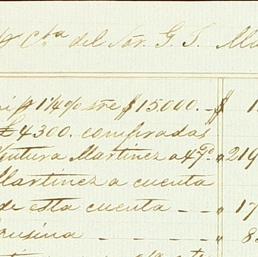 Cta del Sor. G. T. Ma
p 1¼% sre $15000. - $ 1
£4300. compradas
Ventura Martinez a 47 " 219
Martinez a cuenta
de esta cuenta - - " 17
- - " 8